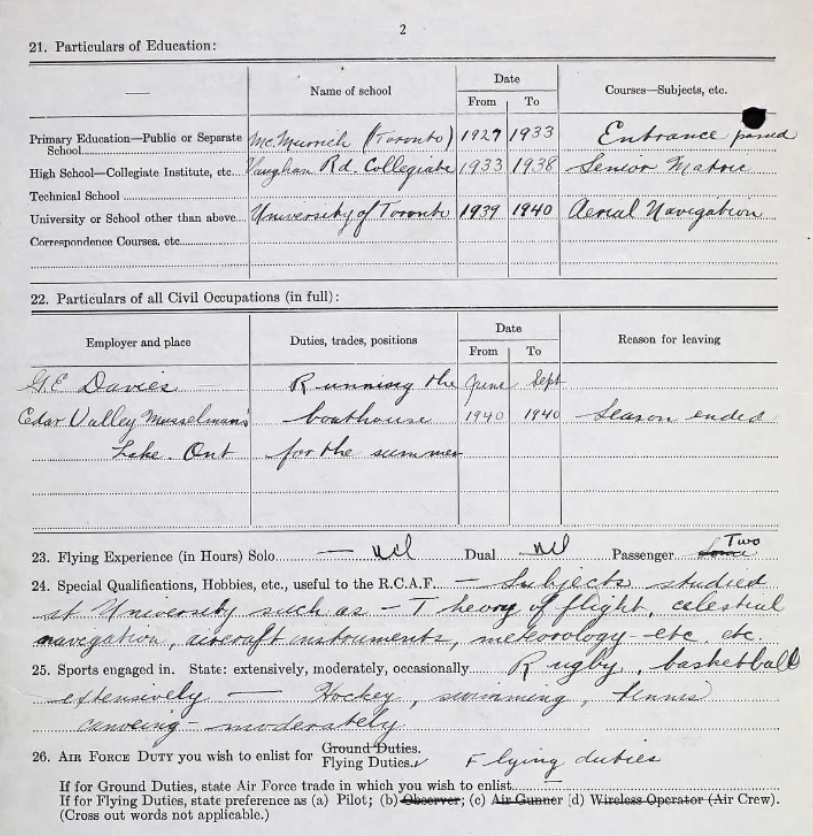 2
21. Particulars of Education:
Name of school Date Courses—Subjects, etc.
From To
Primary Education—Public or Separate School Mc.Murrich (Toronto) 1927 1933 Entrance passed
High School—Collegiate Institute, etc. Vaughan Rd. Collegiate 1933 1938 Senior Matric
Technical School
University or School other than above University of Toronto 1939 1940 Aerial Navigation
Correspondence Courses, etc.
22. Particulars of all Civil Occupations (in full):
Employer and place Duties, trades, positions Date Reason for leaving
From To
G.E Davies — Running the June Sept
Cedar Valley Musselman's boathouse 1940 1940 Season ended
Lake. Ont for the summer
23. Flying Experience (in Hours) Solo — nil Dual nil Passenger Two
24. Special Qualifications, Hobbies, etc., useful to the R.C.A.F. — Subjects studied
at University such as — Theory of flight, celestial
navigation, aircraft instruments, meteorology - etc. etc.
25. Sports engaged in. State: extensively, moderately, occasionally Rugby, basketball
extensively — Hockey, swimming, tennis
canoeing - moderately
26. AIR FORCE DUTY you wish to enlist for Ground Duties.
Flying Duties.✓ Flying duties
If for Ground Duties, state Air Force trade in which you wish to enlist —
If for Flying Duties, state preference as (a) Pilot; (b) Observer; (c) Air Gunner [d) Wireless Operator (Air Crew).
(Cross out words not applicable.)